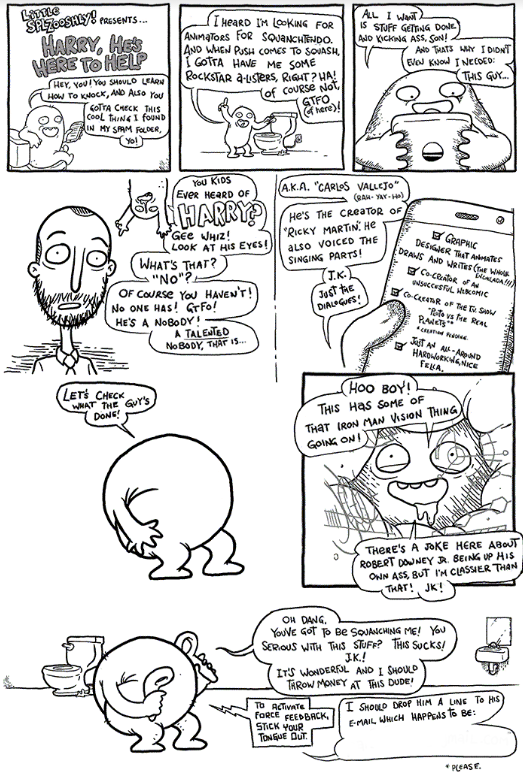 LITTLE
SPLZOOSHLY! PRESENTS...
HARRY, HE'S
HERE TO HELP
HEY, YOU! YOU SHOULD LEARN
HOW TO KNOCK, AND ALSO YOU
GOTTA CHECK THIS
COOL THING I FOUND
IN MY SPAM FOLDER,
YO!
I HEARD I'M LOOKING FOR
ANIMATORS FOR SQUANCHTENDO.
AND WHEN PUSH COMES TO SQUASH,
I GOTTA HAVE ME SOME
ROCKSTAR A-LISTERS, RIGHT? HA!
OF COURSE NOT,
GTFO
(OF HERE)!
ALL I WANT
IS STUFF GETTING DONE
AND KICKING ASS, SON!
AND THAT'S WHY I DIDN'T
EVEN KNOW I NEEDED:
THIS GUY...
YOU KIDS
EVER HEARD OF
HARRY?
GEE WHIZ!
LOOK AT HIS EYES!
WHAT'S THAT?
"NO"?
OF COURSE YOU HAVEN'T!
NO ONE HAS! GTFO!
HE'S A NOBODY!
A TALENTED
NOBODY, THAT IS...
A.K.A. "CARLOS VALLEJO"
(BAH-YAY-HO)
HE'S THE CREATOR OF
"RICKY MARTIN". HE
ALSO VOICED THE
SINGING PARTS!
J.K.
JUST THE
DIALOGUES!
GRAPHIC
DESIGNER THAT ANIMATES
DRAWS AND WRITES (THE WHOLE
ENCHILADA!!!)
CO-CREATOR OF AN
UNSUCCESSFUL WEBCOMIC
CO-CREATOR OF THE TV SHOW
PLANETS"*
JUST AN ALL-AROUND
HARDWORKING, NICE
FELLA.
LET'S CHECK
WHAT THE GUY'S
DONE!
HOO BOY!
THIS HAS SOME OF
THAT IRON MAN VISION THING
GOING ON!
THERE'S A JOKE HERE ABOUT
ROBERT DOWNEY JR. BEING UP HIS
OWN ASS, BUT I'M CLASSIER THAN
THAT! JK!
OH DANG,
YOU'VE GOT TO BE SQUANCHING ME! YOU
SERIOUS WITH THIS STUFF? THIS SUCKS!
J.K.!
IT'S WONDERFUL AND I SHOULD
THROW MONEY AT THIS DUDE!
TO ACTIVATE
FORCE FEEDBACK,
STICK YOUR
TONGUE OUT.
I SHOULD DROP HIM A LINE TO HIS
E-MAIL WHICH HAPPENS TO BE:
* PLEASE.